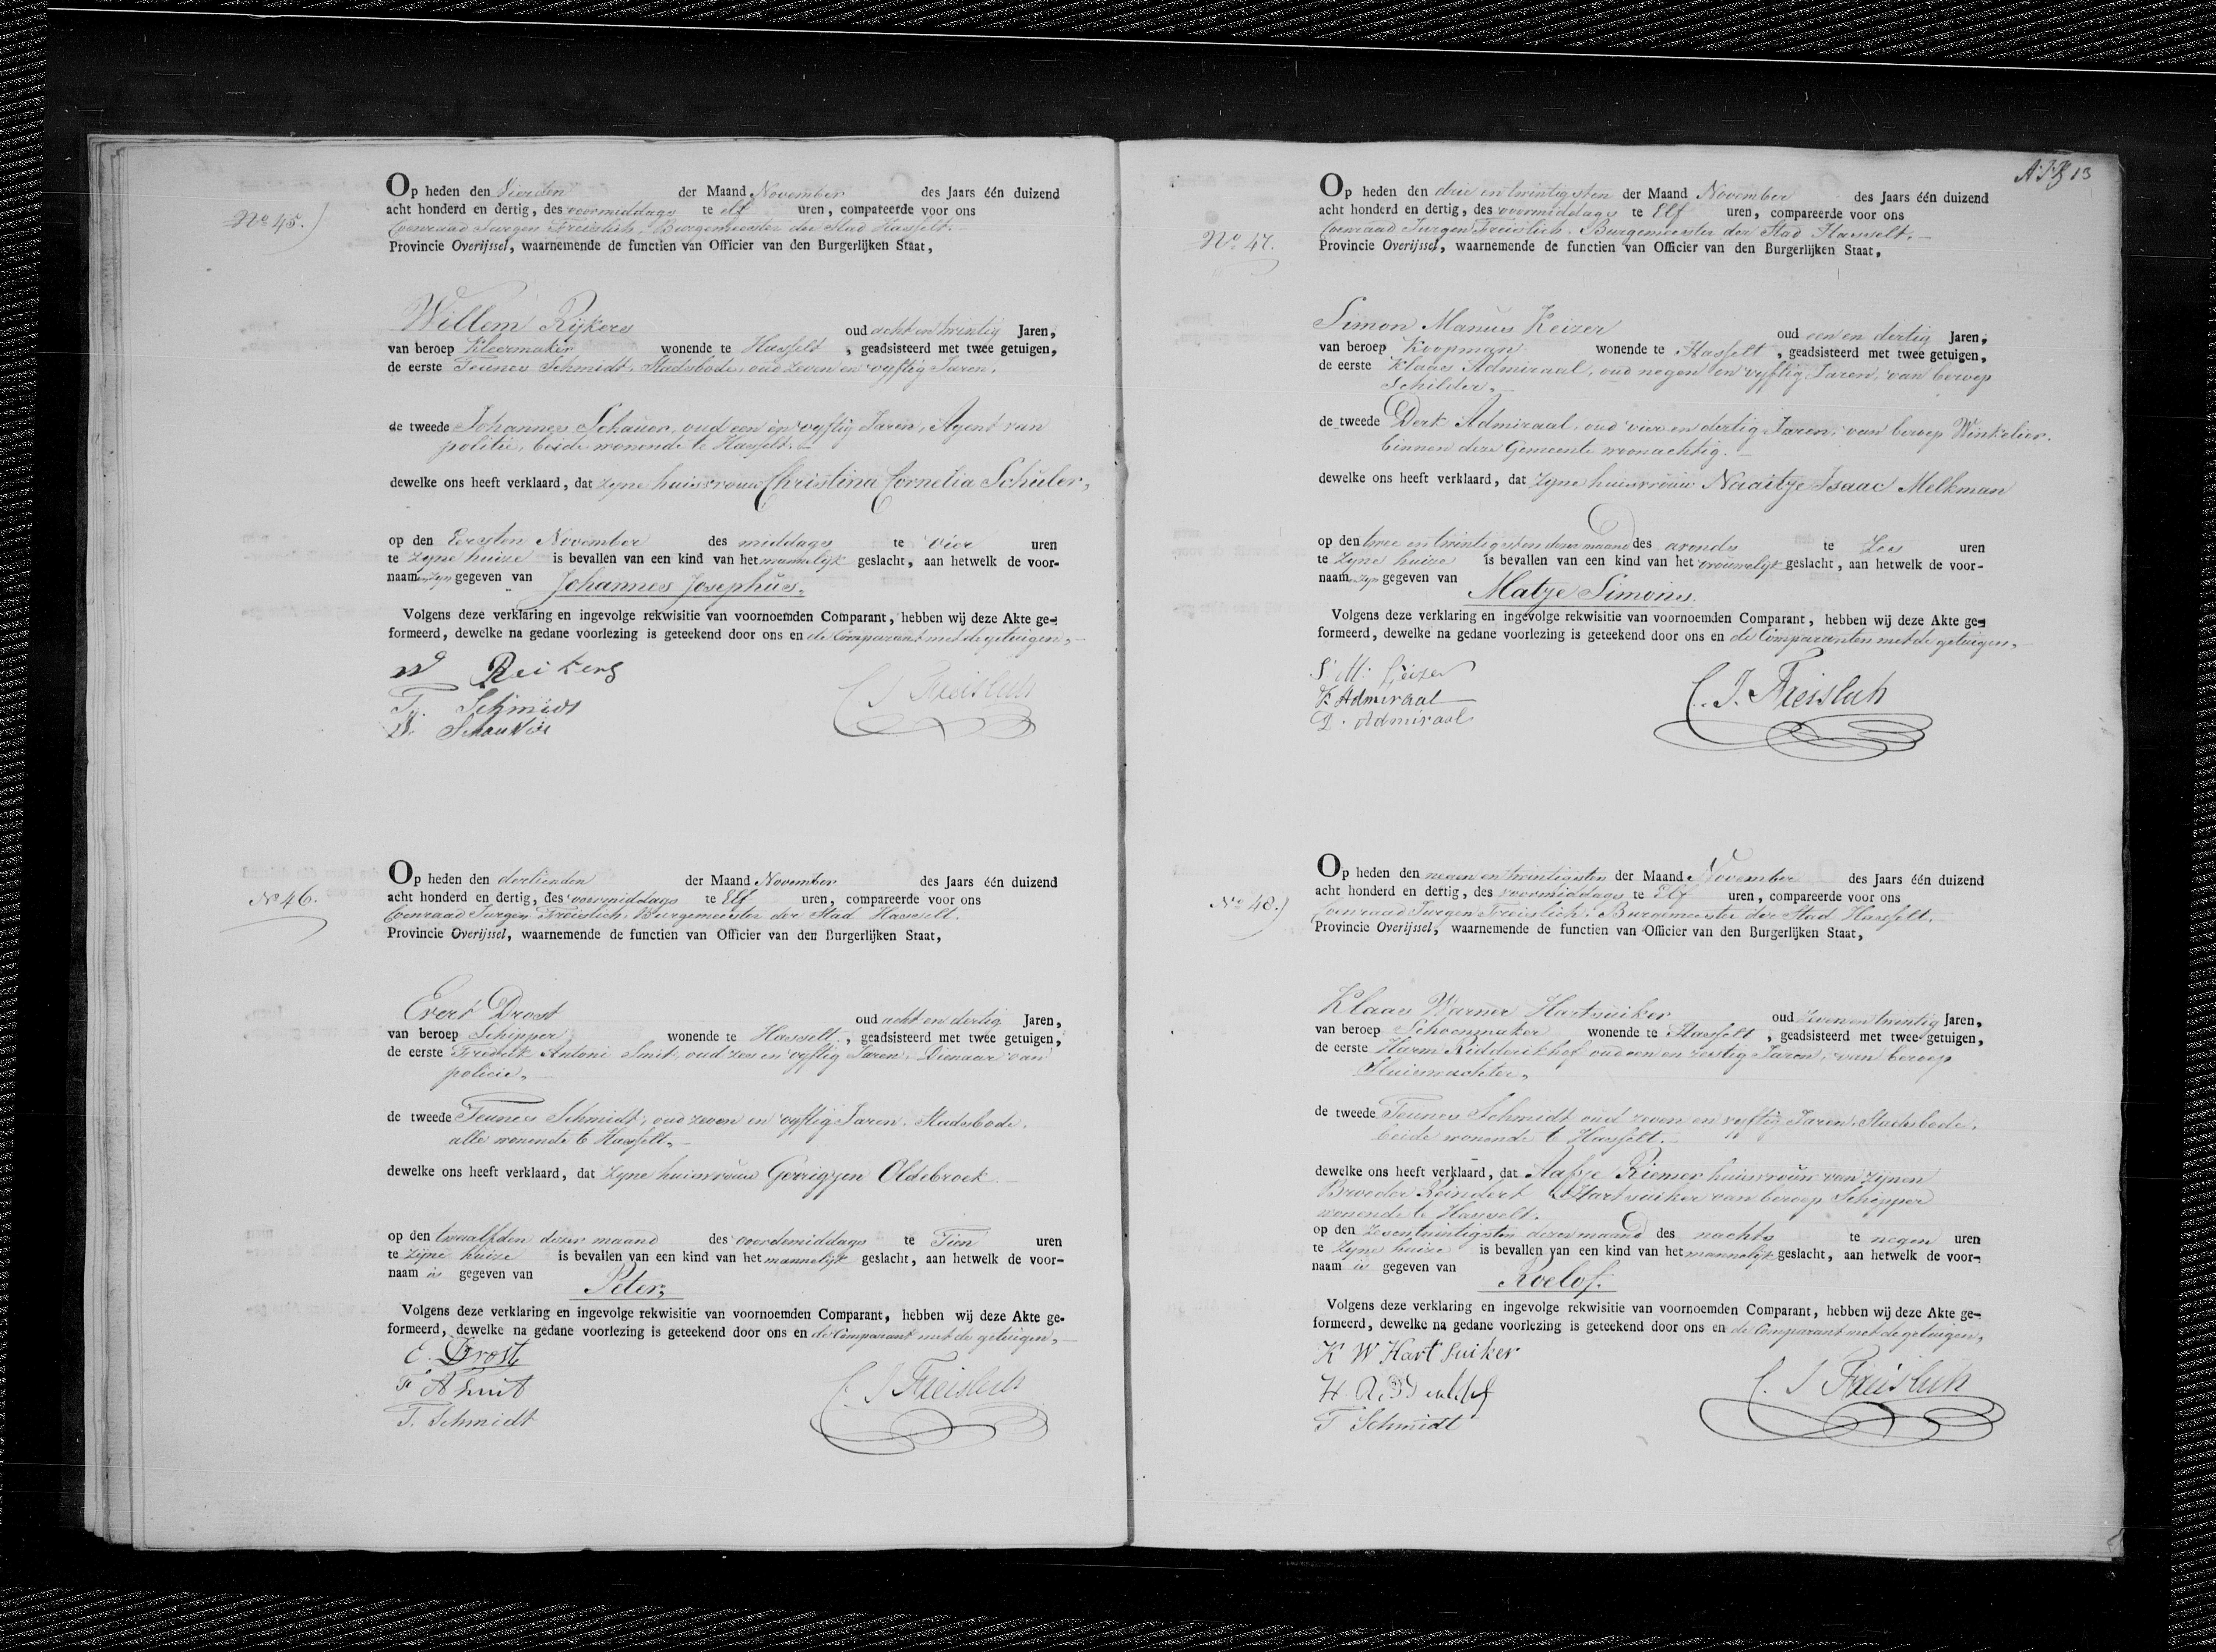 No 45.)
Op heden den Vierden der Maand November des Jaars één duizend
acht honderd en dertig, des voormiddags te elf uren, compareerde voor ons
Coenraad Jurgen Freislich, Burgemeester der Stad Hasselt.
Provincie Overijssel, waarnemende de functien van Officier van den Burgerlijken Staat,
Willem Rijkers oud acht en twintig Jaren,
van beroep Kleermaker wonende te Hasselt, geadsisteerd met twee getuigen,
de eerste Teunes Schmidt, Stadsbode, oud zeven en vyftig Jaren,
de tweede Johannes Schauer, oud een en vyftig Jaren, Agent van
politie, beide wonende te Hasselt.
dewelke ons heeft verklaard, dat zyne huisvrouw Christina Cornelia Schuler,
op den Eersten November des middags te vier uren
te zyne huize is bevallen van een kind van het mannelyk geslacht, aan hetwelk de voor-
naamen zyn gegeven van Johannes Josephus.
Volgens deze verklaring en ingevolge rekwisitie van voornoemden Comparant, hebben wij deze Akte ge-
formeerd, dewelke na gedane voorlezing is geteekend door ons en de Comparant met de getuigen,
W Reikers
T. Schmidt
C J Freislich
No 46.
Op heden den dertienden der Maand November des Jaars één duizend
acht honderd en dertig, des voormiddags te Elf uren, compareerde voor ons
Coenraad Jurgen Freislich, Burgemeester der Stad Hasselt.
Provincie Overijssel, waarnemende de functien van Officier van den Burgerlijken Staat,
Evert Drost oud acht en dertig Jaren,
van beroep Schipper wonende te Hasselt, geadsisteerd met twee getuigen,
de eerste Fredrik Antoni Smit, oud zes en vyftig Jaren, Dienaar van
policie,
de tweede Teunes Schmidt, oud zeven en vyftig Jaren, Stadsbode,
alle wonende te Hasselt,
dewelke ons heeft verklaard, dat zyne huisvrouw Gerrigjen Oldebroek
op den twaalfden dezer maand des voordemiddags te Tien uren
te zijne huize is bevallen van een kind van het mannelyk geslacht, aan hetwelk de voor-
naam is gegeven van Peter,
Volgens deze verklaring en ingevolge rekwisitie van voornoemden Comparant, hebben wij deze Akte ge-
formeerd, dewelke na gedane voorlezing is geteekend door ons en de Comparant met de getuigen,
E. Drost
F A Smit
T. Schmidt
C. J Freislich
A.J.B 13
No 47.
Op heden den drie en twintigsten der Maand November des Jaars één duizend
acht honderd en dertig, des voormiddags te Elf uren, compareerde voor ons
Coenraad Jurgen Freislich, Burgemeester der Stad Hasselt.
Provincie Overijssel, waarnemende de functien van Officier van den Burgerlijken Staat,
Simon Manus Keizer oud een en dertig Jaren,
van beroep Koopman wonende te Hasselt, geadsisteerd met twee getuigen,
de eerste Klaas Admiraal, oud negen en vyftig Jaren, van beroep
Schilder,
de tweede Derk Admiraal, oud vier en dertig Jaren, van beroep Winkelier.
binnen deze Gemeente woonachtig.
dewelke ons heeft verklaard, dat zyne huisvrouw Naaitje Isaac Melkman
op den twee en twintigsten dezer maand des avonds te Zes uren
te zyne huize is bevallen van een kind van het vrouwelyk geslacht, aan hetwelk de voor-
naam zyn gegeven van Matje Simons.
Volgens deze verklaring en ingevolge rekwisitie van voornoemden Comparant, hebben wij deze Akte ge-
formeerd, dewelke na gedane voorlezing is geteekend door ons en de Comparanten met de getuigen,
S M: Keizer
K Admiraal
D. Admiraal
C. J. Freislich
No 48.)
Op heden den negen en twintigsten der Maand November des Jaars één duizend
acht honderd en dertig, des voormiddags te Elf uren, compareerde voor ons
Coenraad Jurgen Freislich, Burgemeester der Stad Hasselt.
Provincie Overijssel, waarnemende de functien van Officier van den Burgerlijken Staat,
Klaas Warner Hartsuiker oud zeven en twintig Jaren,
van beroep Schoenmaker wonende te Hasselt, geadsisteerd met twee getuigen,
de eerste Harm Ridderikhof oud een en zestig Jaren, van beroep
Sluiswachter,
de tweede Teunes Schmidt oud zeven en vyftig Jaren, Stadsbode,
beide wonende te Hasselt.
dewelke ons heeft verklaard, dat Aafje Riemer huisvrouw van zijnen
Broeder Reindert Hartsuiker van beroep Schipper
wonende te Hasselt.
op den zesentwintigsten dezer maand des nachts te negen uren
te zyne huize is bevallen van een kind van het mannelyk geslacht, aan hetwelk de voor-
naam is gegeven van Roelof.
Volgens deze verklaring en ingevolge rekwisitie van voornoemden Comparant, hebben wij deze Akte ge-
formeerd, dewelke na gedane voorlezing is geteekend door ons en de Comparant met de getuigen,
K W Hartsuiker
T Schmidt
C. J Freislich